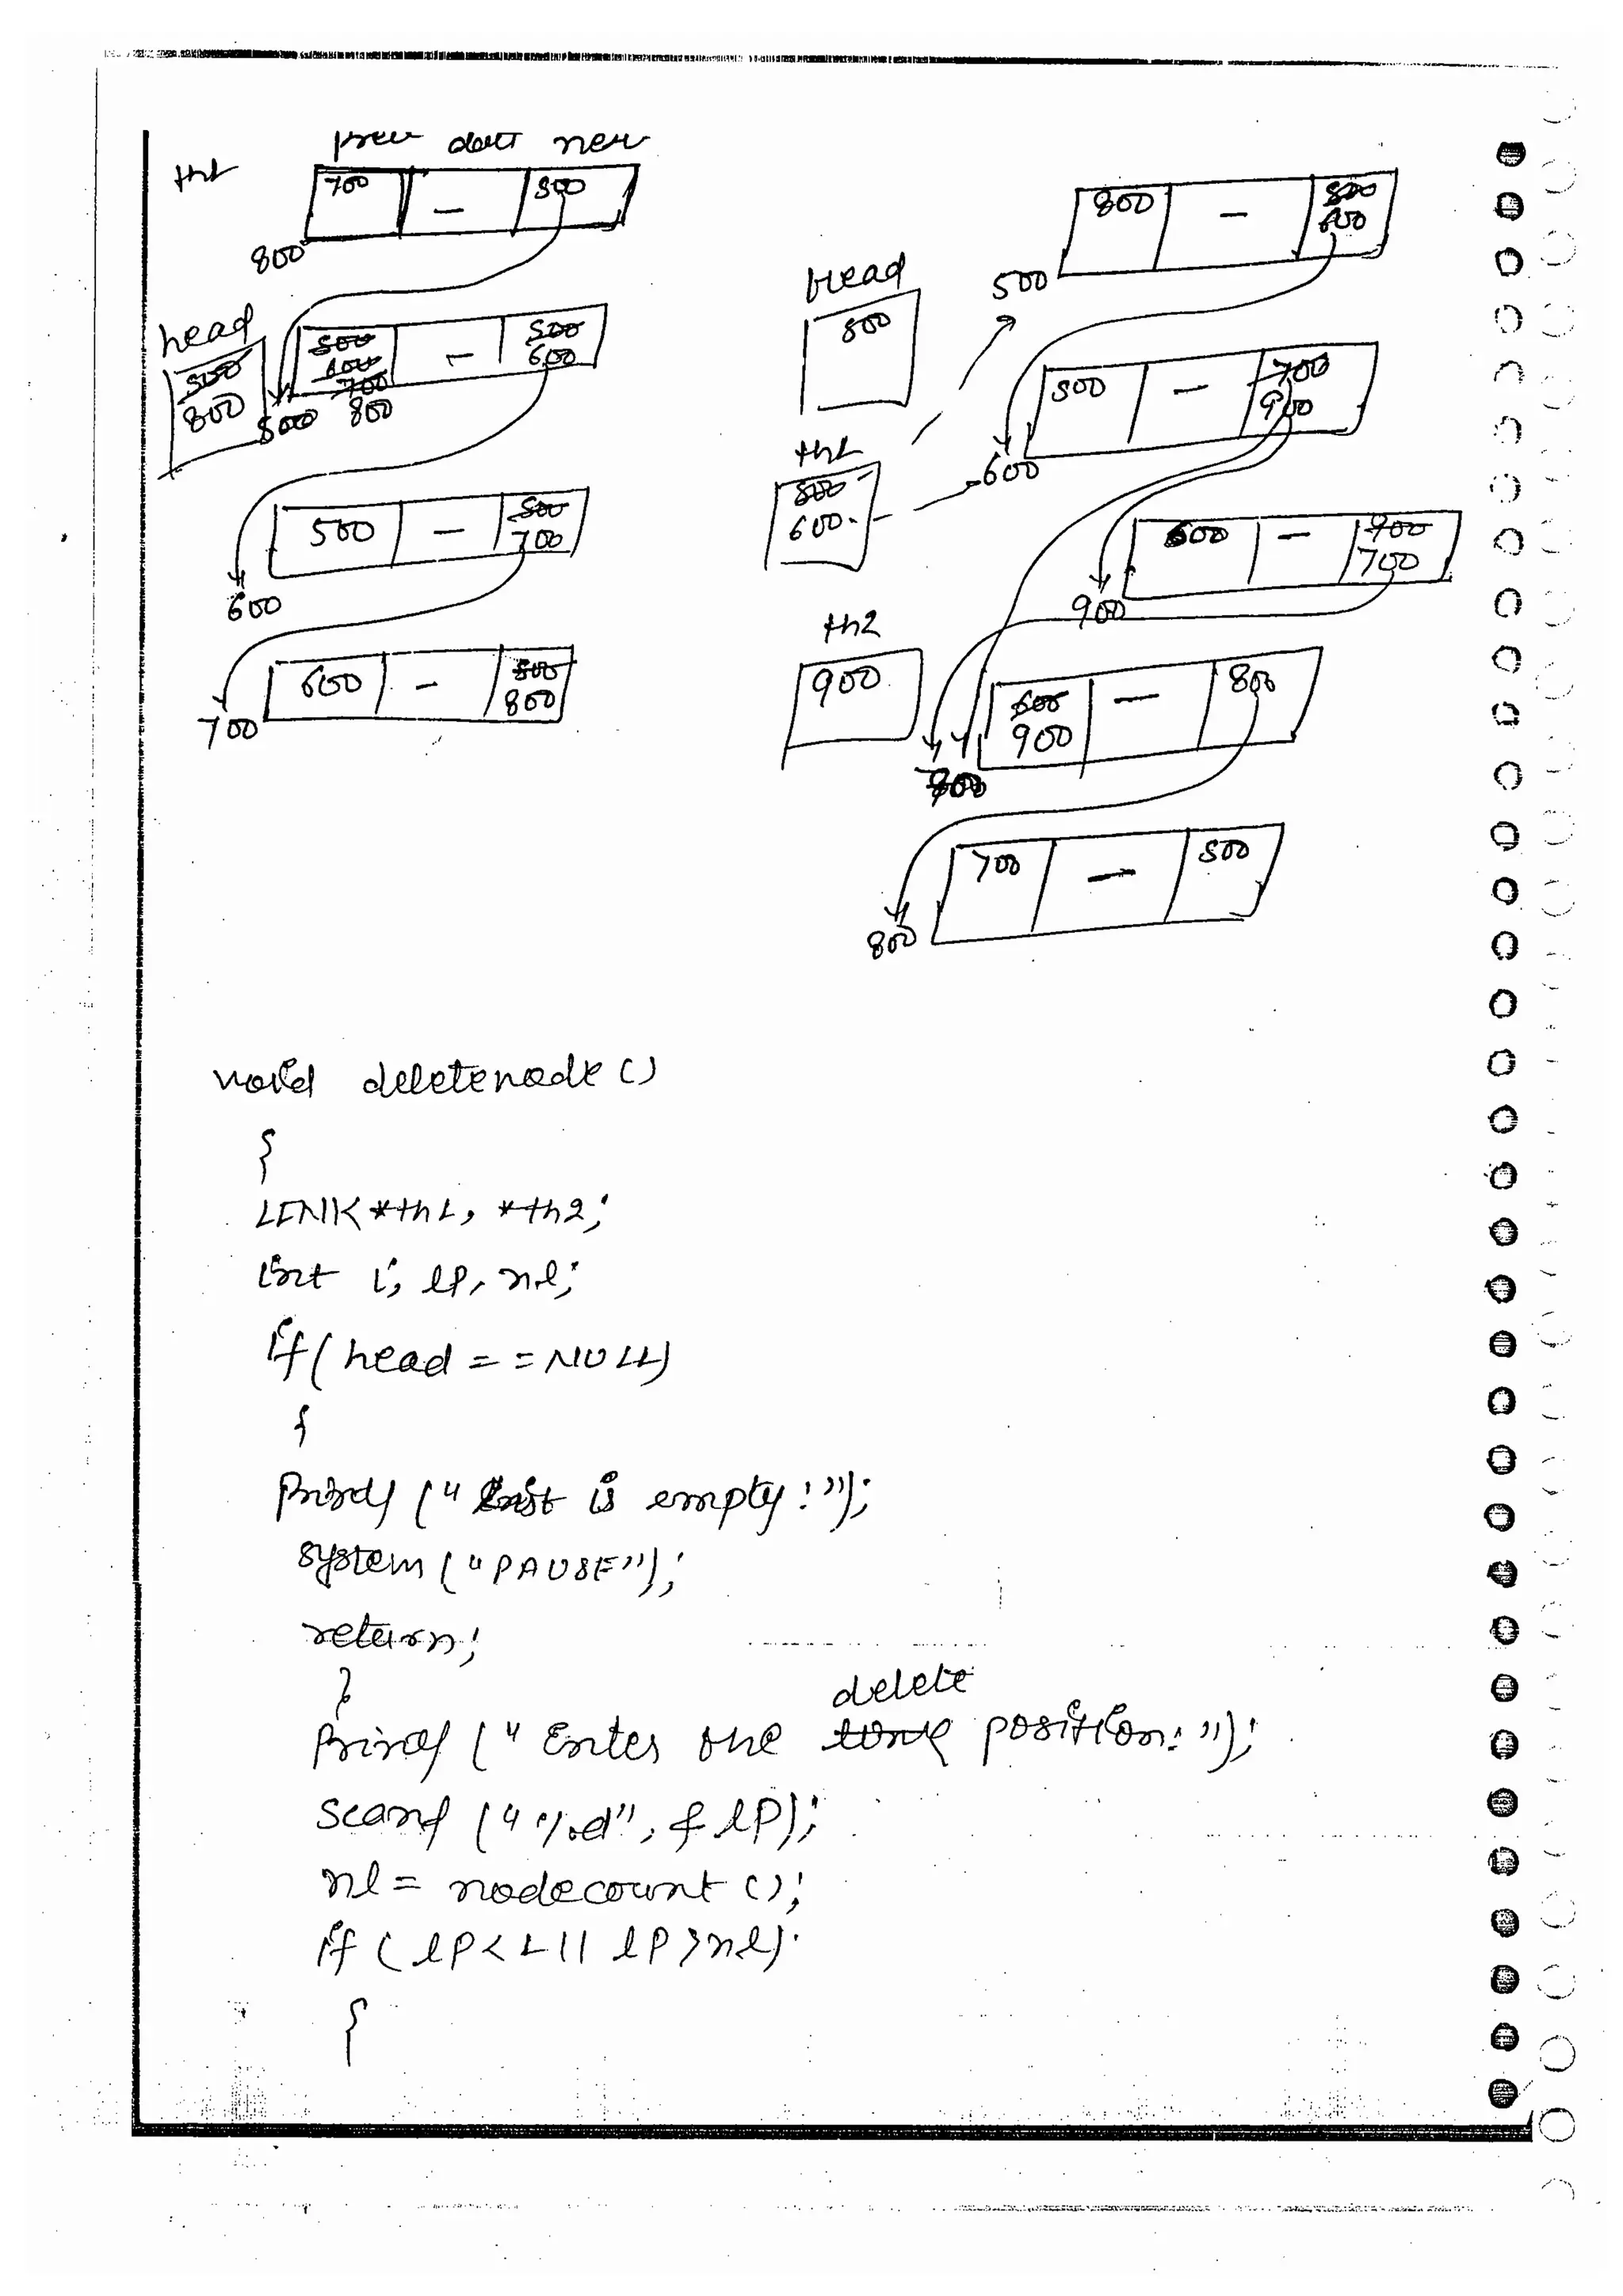 prev data new
th1
700 — 500
800
head
500
800
500
600
700
800
— 500
600
500
500 — 500
700
600
600 — 500
800
700
800 — 800
600
500
head
500
500 — 700
900
600
th1
500
600
600 — 900
700
900
th2
900
600
900 — 800
700
700 — 500
800
void deletenode ()
{
LINK *th1, *th2;
int i, lp, nl;
if( head == NULL)
{
Printf (" List is empty! ");
system ("PAUSE");
return;
}
delete
Printf (" Enter the position: ");
Scanf ("%d", & lp);
nl = nodecount ();
if ( lp < 1 || lp > nl)
{